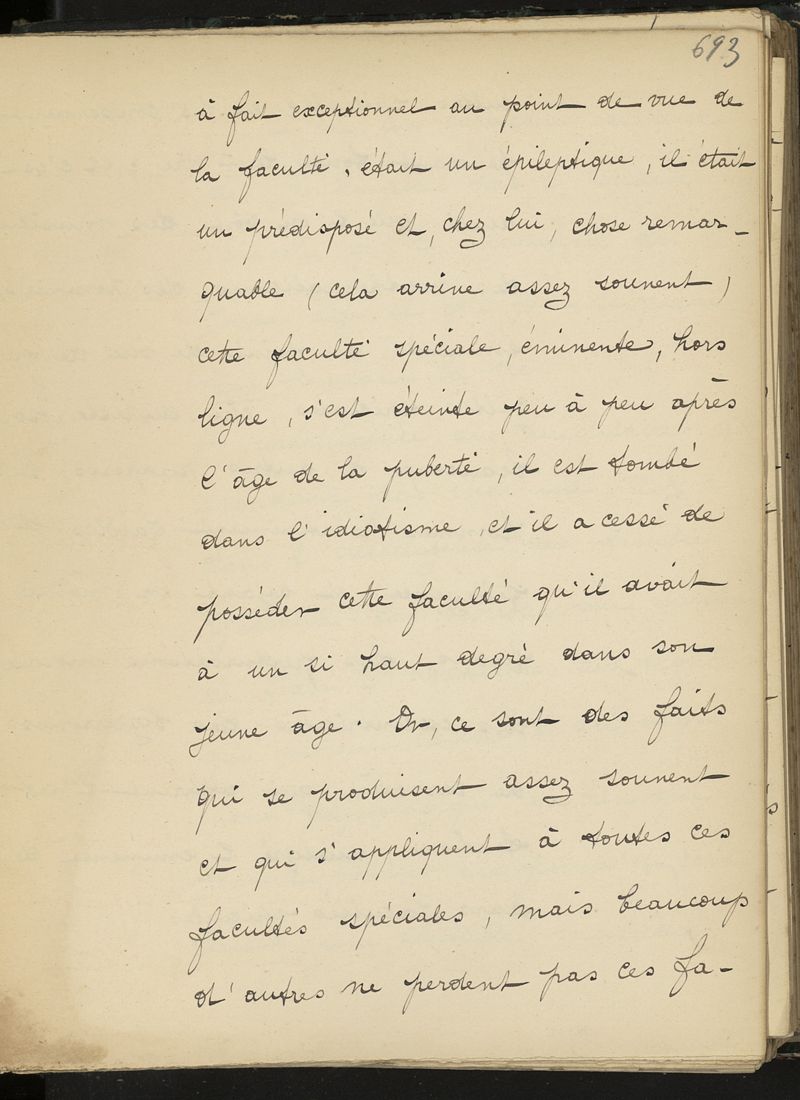 693
à fait exceptionnel au point de vue de
la faculté, était un épileptique, il était
un prédisposé et, chez lui, chose remar-
quable (cela arrive assez souvent)
cette faculté spéciale, éminente, hors
ligne, s'est éteinte peu à peu après
l'âge de la puberté, il est tombé
dans l'idiotisme, et il a cessé de
posséder cette faculté qu'il avait
à un si haut degré dans son
jeune âge. Or, ce sont des faits
qui se produisent assez souvent
et qui s'appliquent à toutes ces
facultés spéciales, mais beaucoup
d'autres ne perdent pas ces fa-